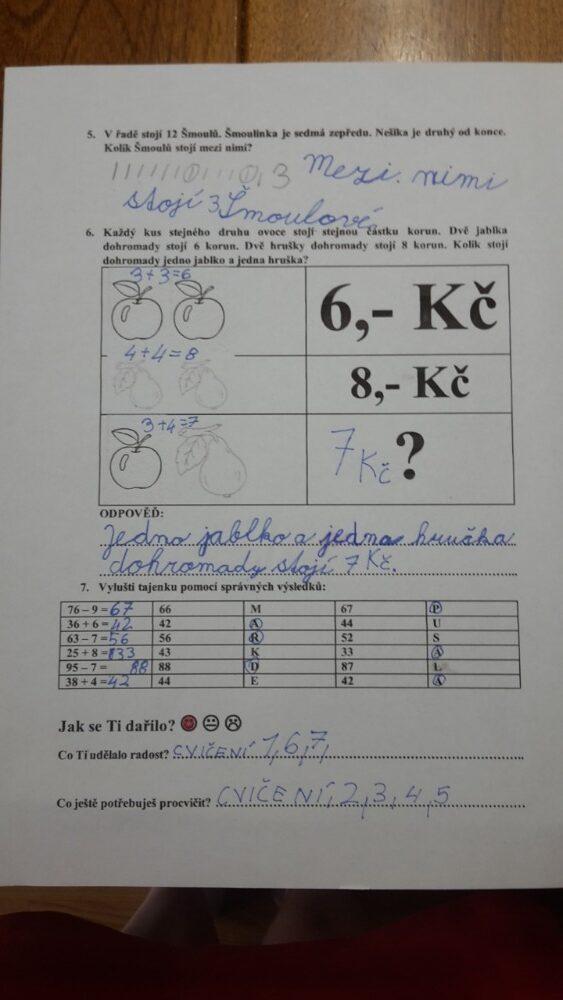 5. V řadě stojí 12 Šmoulů. Šmoulinka je sedmá zepředu. Nešika je druhý od konce.
Kolik Šmoulů stojí mezi nimi?
3 Mezi. nimi
stojí 3 Šmoulové
6. Každý kus stejného druhu ovoce stojí stejnou částku korun. Dvě jablka
dohromady stojí 6 korun. Dvě hrušky dohromady stojí 8 korun. Kolik stojí
dohromady jedno jablko a jedna hruška?
3+3=6
6,- Kč
4+4=8
8,- Kč
3+4=7
7 Kč ?
ODPOVĚĎ:
Jedno jablko a jedna hručka
dohromady stojí 7 Kč.
7. Vylušti tajenku pomocí správných výsledků:
76 – 9 = 67 66 M 67 P
36 + 6 = 42 42 A 44 U
63 – 7 = 56 56 R 52 S
25 + 8 = 33 43 K 33 A
95 – 7 = 88 88 D 87 L
38 + 4 = 42 44 E 42 A
Jak se Ti dařilo?
Co Ti udělalo radost? CVIČENÍ 1,6,7,
Co ještě potřebuješ procvičit? CVIČENÍ, 2,3,4,5